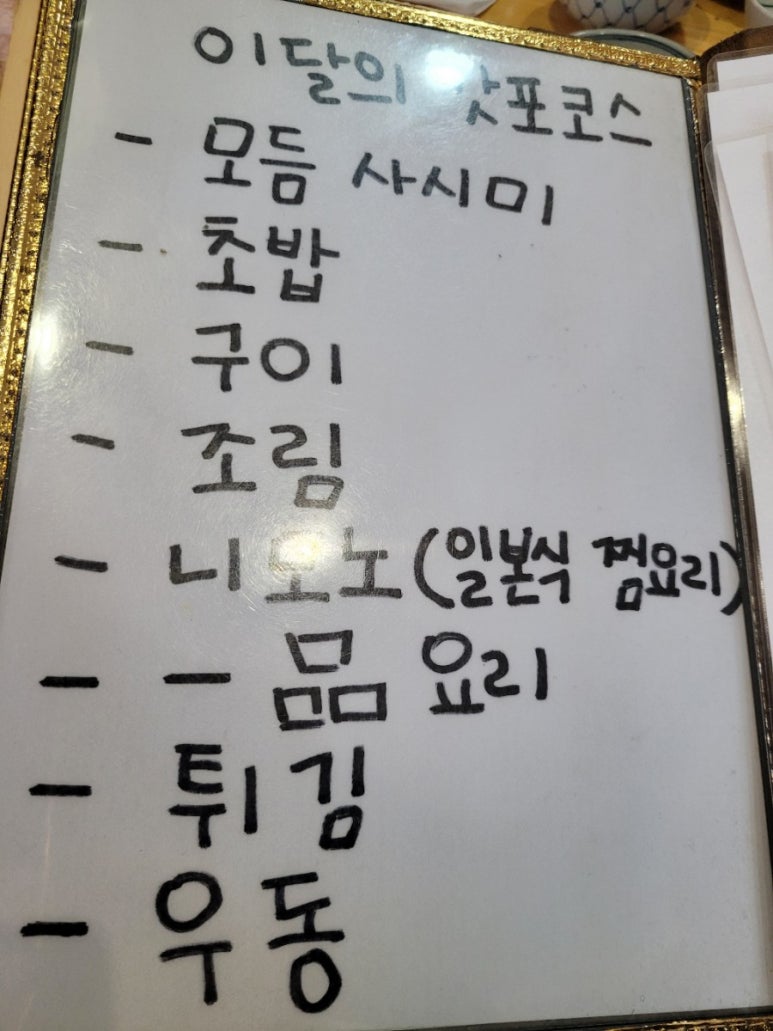 이달의 갓포코스
- 모듬 사시미
- 초밥
- 구이
- 조림
- 니모노(일본식 찜요리)
- 一品 요리
- 튀김
- 우동